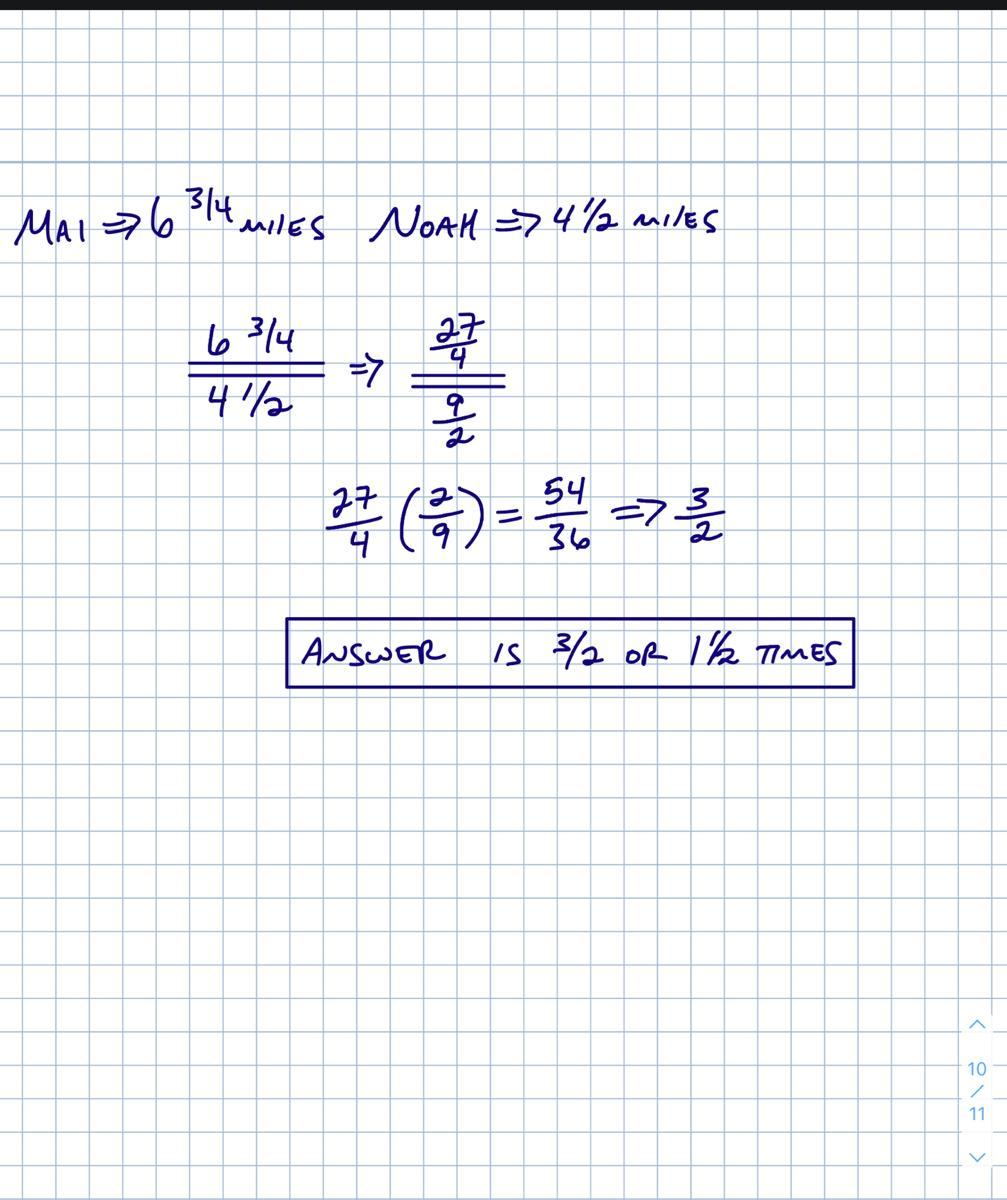 MAI ⇒ 6 3/4 MILES NOAH ⇒ 4 1/2 MILES
6 3/4 / 4 1/2 ⇒ 27/4 / 9/2
27/4 (2/9) = 54/36 ⇒ 3/2
ANSWER IS 3/2 OR 1 1/2 TIMES
10
/
11